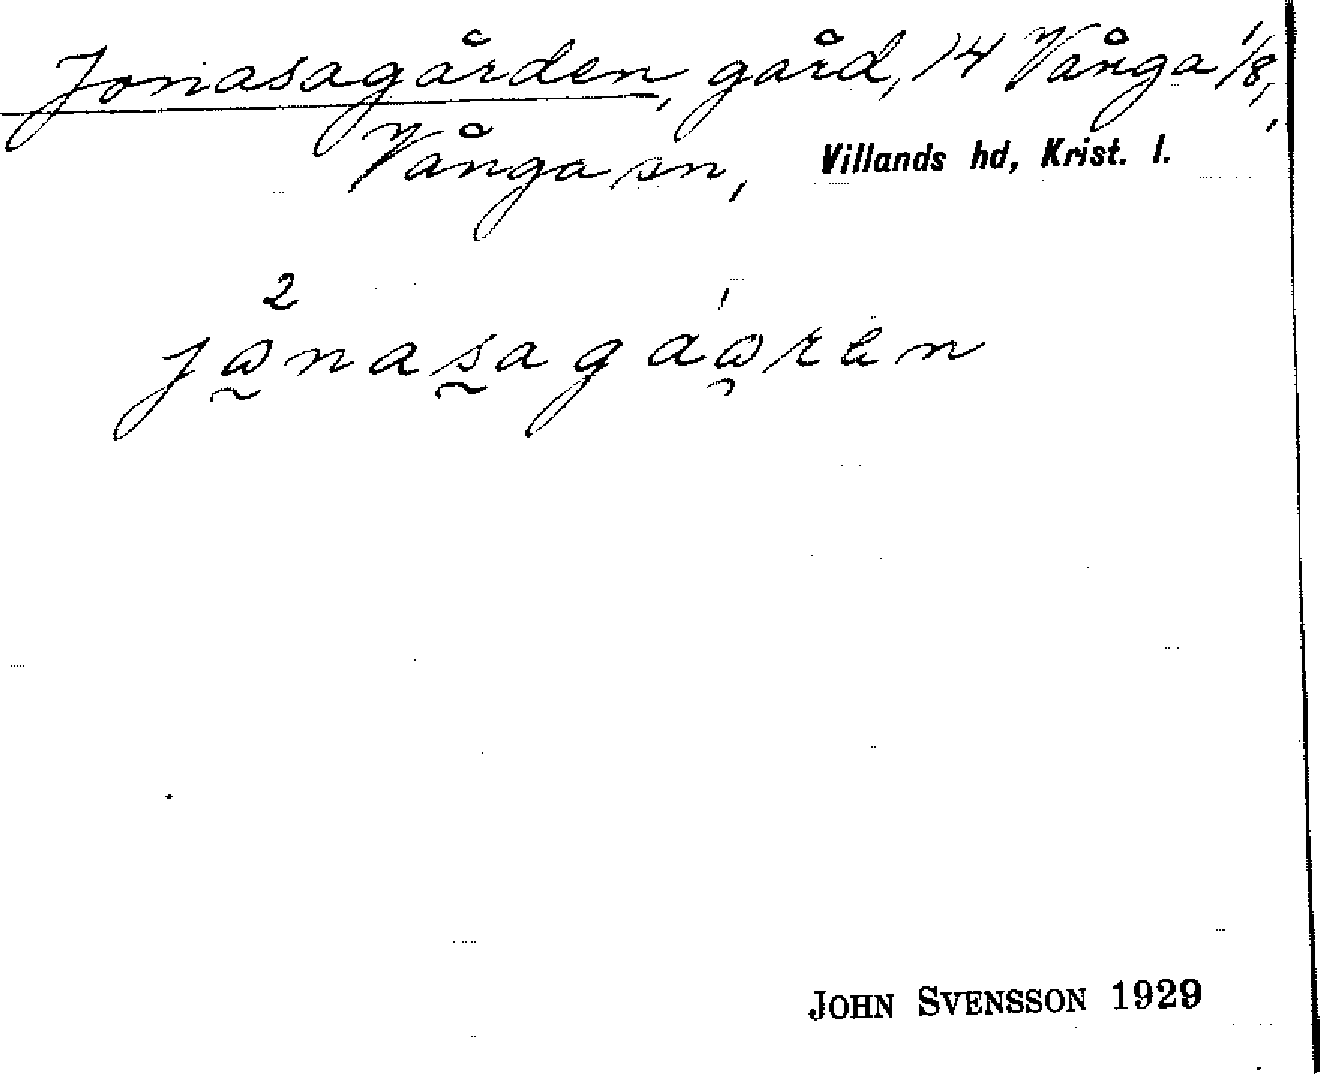 Jonasagården, gård, 14 Vånga 1/8,
Vånga sn, Villands hd, Krist. l.
2
jɷnasagáɷren
JOHN SVENSSON 1929